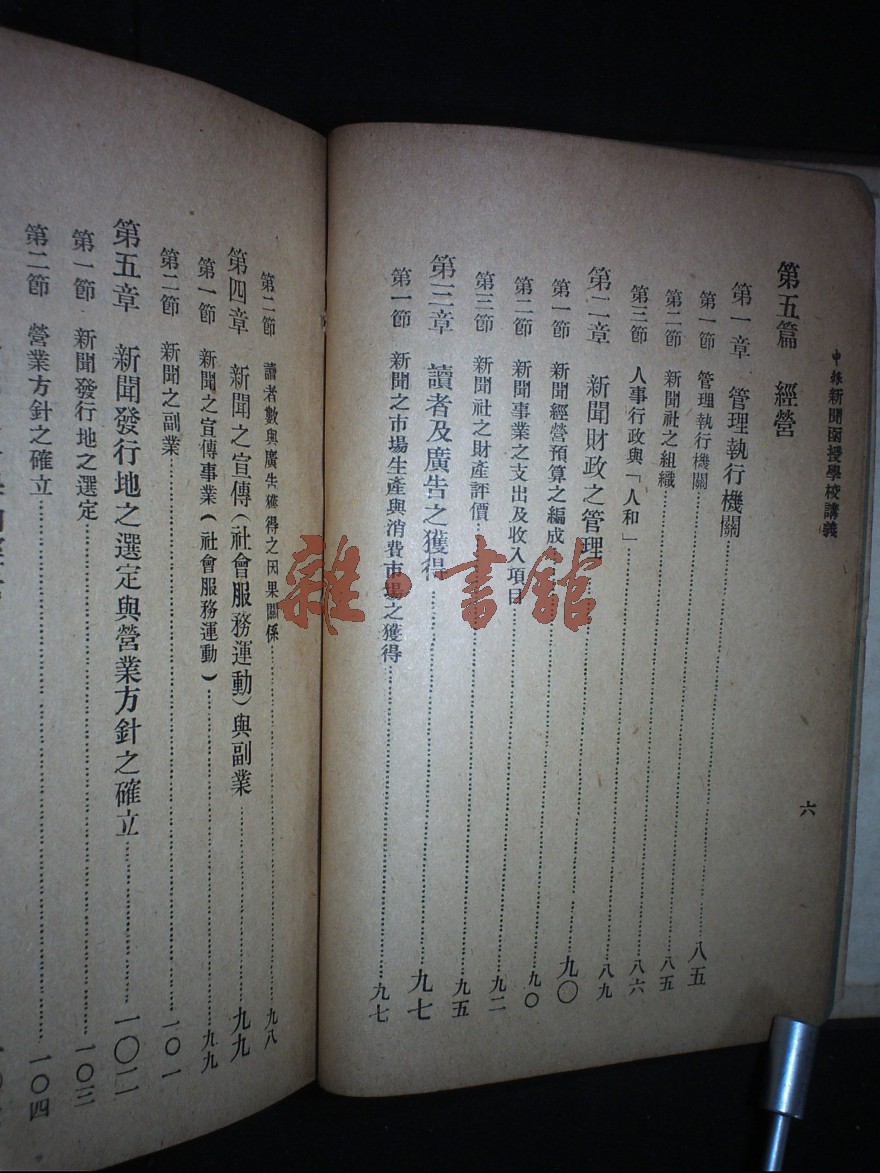 申報新聞函授學校講義
六
第五篇 經營
第一章 管理執行機關……八五
第一節 管理執行機關……八五
第二節 新聞社之組織……八六
第三節 人事行政與「人和」……八九
第二章 新聞財政之管理……九〇
第一節 新聞經營預算之編成……九〇
第二節 新聞事業之支出及收入項目……九二
第三節 新聞社之財產評價……九五
第三章 讀者及廣告之獲得……九七
第一節 新聞之市場生產與消費市場之獲得……九七
第二節 讀者數與廣告獲得之因果關係……九八
第四章 新聞之宣傳(社會服務運動)與副業……九九
第一節 新聞之宣傳事業(社會服務運動)……九九
第二節 新聞之副業……一〇一
第五章 新聞發行地之選定與營業方針之確立……一〇二
第一節 新聞發行地之選定……一〇三
第二節 營業方針之確立……一〇四
雜·書館